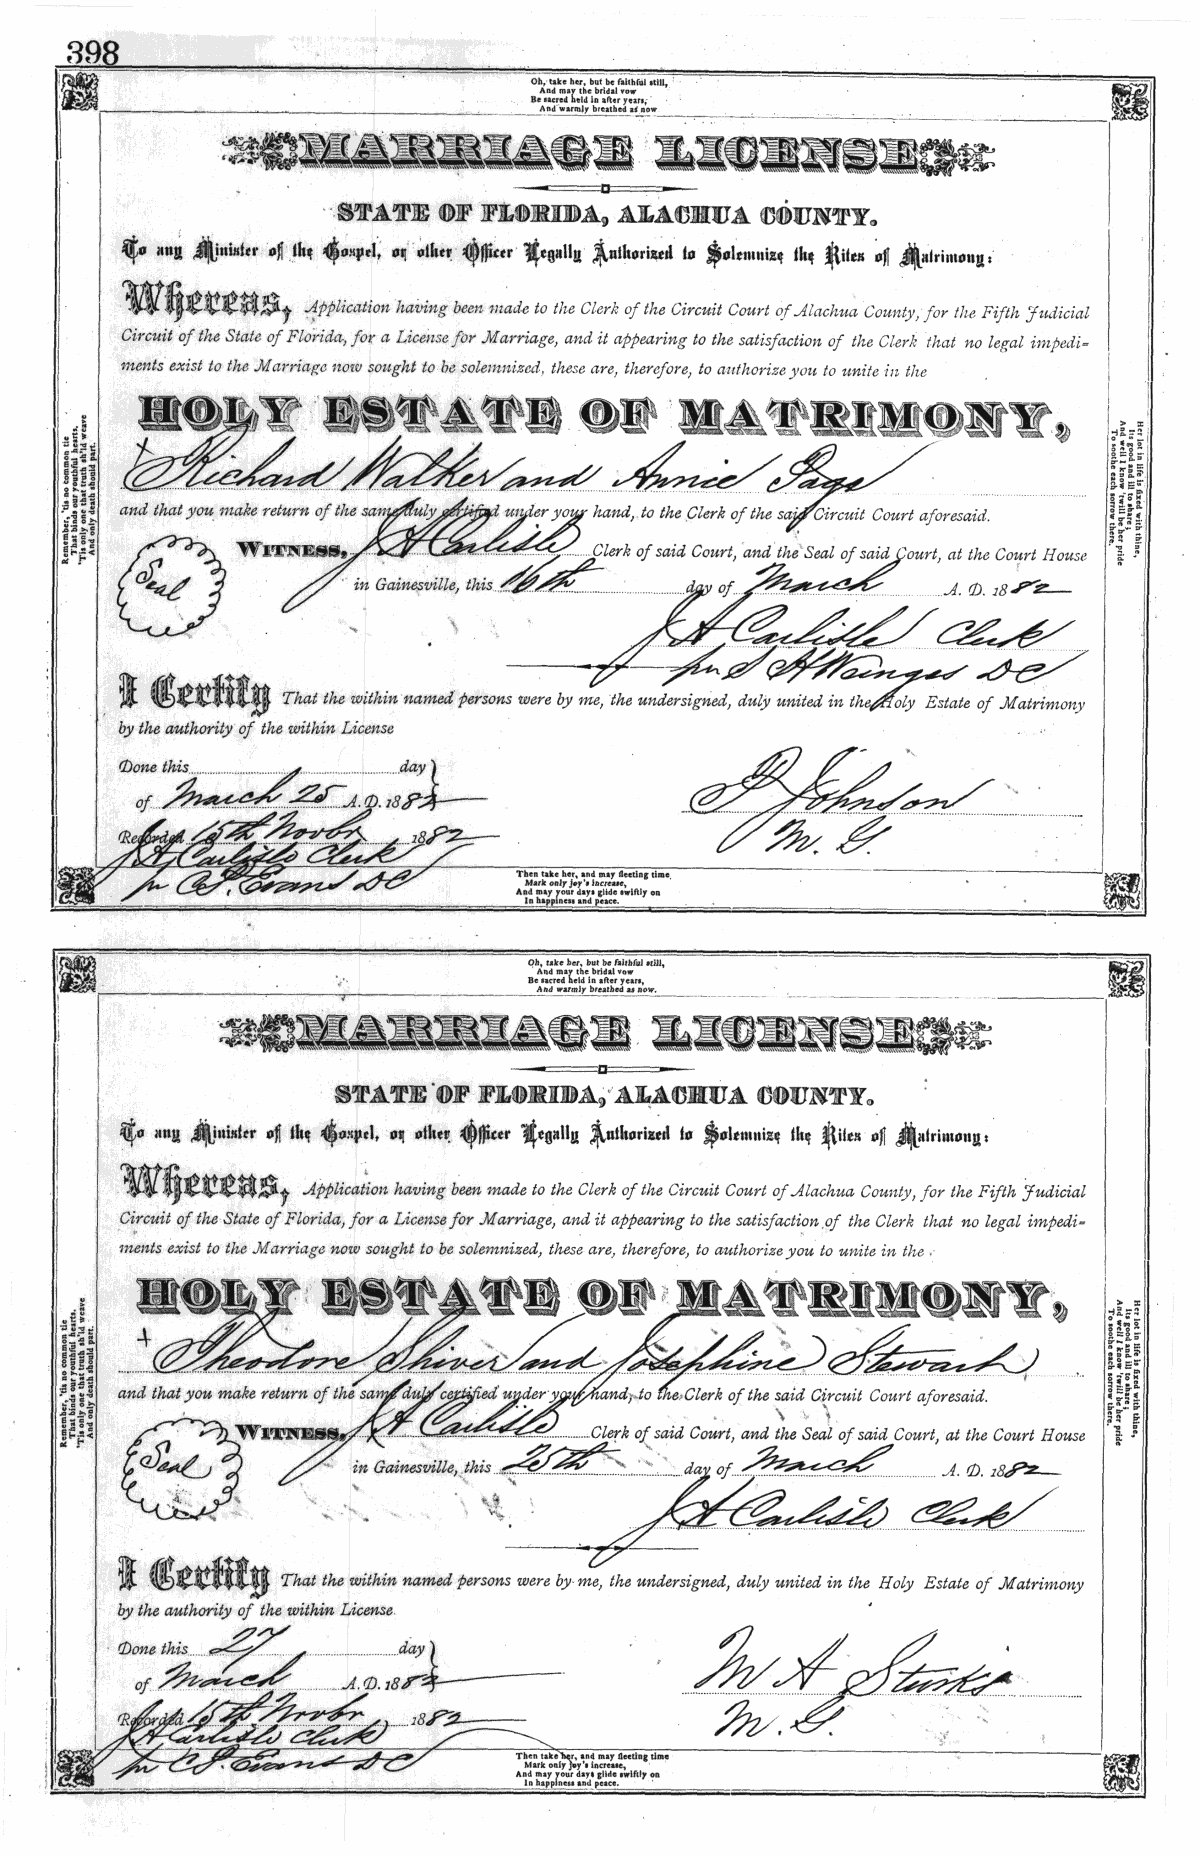 398
Oh, take her, but be faithful still,
And may the bridal vow
Be sacred held in after years,
And warmly breathed as now
MARRIAGE LICENSE
STATE OF FLORIDA, ALACHUA COUNTY.
To any Minister of the Gospel, or other Officer Legally Authorized to Solemnize the Rites of Matrimony:
Whereas, Application having been made to the Clerk of the Circuit Court of Alachua County, for the Fifth Judicial
Circuit of the State of Florida, for a License for Marriage, and it appearing to the satisfaction of the Clerk that no legal impedi=
ments exist to the Marriage now sought to be solemnized, these are, therefore, to authorize you to unite in the
HOLY ESTATE OF MATRIMONY,
Richard Walker and Annie
and that you make return of the same duly certified under your hand, to the Clerk of the said Circuit Court aforesaid.
Seal
WITNESS, J A Carlisle Clerk of said Court, and the Seal of said Court, at the Court House
in Gainesville, this 16th day of March A. D. 1882
J A Carlisle Clerk
per S H Wainges DC
I Certify That the within named persons were by me, the undersigned, duly united in the Holy Estate of Matrimony
by the authority of the within License
Done this day
of March 25 A.D. 1882
P Johnson
M. G.
Recorded 15th Novbr 1882
J A Carlisle Clerk
pr C P. Evans DC
Remember, 'tis no common tie
That binds our youthful hearts,
'Tis only one that truth sh'ld weave
And only death should part.
Her lot in life is fixed with thine,
Its good and ill to share;
And well I know 'twill be her pride
To soothe each sorrow there.
Then take her, and may fleeting time,
Mark only joy's increase,
And may your days glide swiftly on
In happiness and peace.
Oh, take her, but be faithful still,
And may the bridal vow
Be sacred held in after years,
And warmly breathed as now.
MARRIAGE LICENSE
STATE OF FLORIDA, ALACHUA COUNTY.
To any Minister of the Gospel, or other Officer Legally Authorized to Solemnize the Rites of Matrimony:
Whereas, Application having been made to the Clerk of the Circuit Court of Alachua County, for the Fifth Judicial
Circuit of the State of Florida, for a License for Marriage, and it appearing to the satisfaction of the Clerk that no legal impedi=
ments exist to the Marriage now sought to be solemnized, these are, therefore, to authorize you to unite in the
HOLY ESTATE OF MATRIMONY,
Theodore Shiver and Josephine Stewart
and that you make return of the same duly certified under your hand, to the Clerk of the said Circuit Court aforesaid.
Seal
WITNESS, J A Carlisle Clerk of said Court, and the Seal of said Court, at the Court House
in Gainesville, this 25th day of March A. D. 1882
J A Carlisle Clerk
I Certify That the within named persons were by me, the undersigned, duly united in the Holy Estate of Matrimony
by the authority of the within License
Done this 27 day
of March A.D. 1882
M A Sturks
M. G.
Recorded 15th Novbr 1882
J A Carlisle Clerk
pr C P. Evans DC
Remember, 'tis no common tie
That binds our youthful hearts,
'Tis only one that truth sh'ld weave
And only death should part.
Her lot in life is fixed with thine,
Its good and ill to share;
And well I know 'twill be her pride
To soothe each sorrow there.
Then take her, and may fleeting time
Mark only joy's increase,
And may your days glide swiftly on
In happiness and peace.